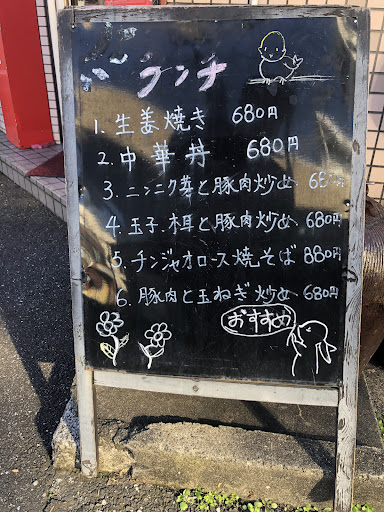 ランチ
1. 生姜焼き 680円
2. 中華丼 680円
3. ニンニク芽と豚肉炒め 680円
4. 玉子.木耳と豚肉炒め 680円
5. チンジャオロース焼そば 880円
6. 豚肉と玉ねぎ炒め 680円
おすすめ